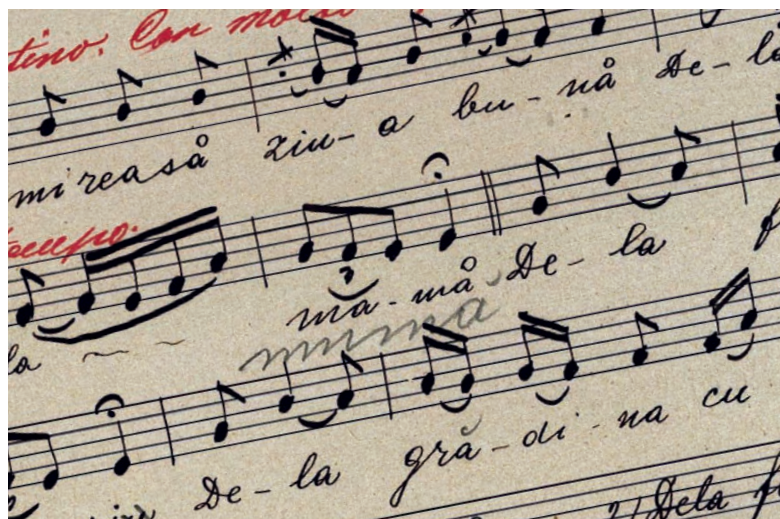 tino. Con molto
mireasă ziu-a bu-nă De-la
Tempo.
la ~ ~ ~ ma-mă De-la
mumă
De-la gră-di-na cu
2) Dela